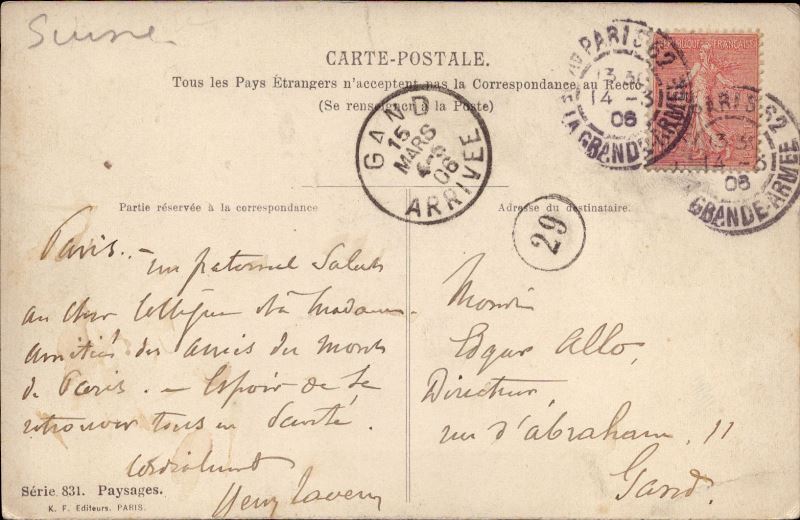 Suisse
CARTE-POSTALE.
Tous les Pays Étrangers n'acceptent pas la Correspondance au Recto
(Se renseigner à la Poste)
PARIS 62
13 30
14 - 3
06
DE LA GRANDE ARMÉE
RÉPUBLIQUE FRANÇAISE
PARIS 62
14 - 3
06
GRANDE-ARMÉE
GAND
15
MARS
06
ARRIVÉE
29
Partie réservée à la correspondance
Adresse du destinataire.
Paris. - un paternel Salut
au cher Collègue et à Madame.
amitiés des amis du
de Paris. - Espoir de se
retrouver tous en Santé.
Cordialement
Monsieur
Edgar Allo,
Directeur,
rue d'abraham. 11
Gand.
Série 831. Paysages.
K. F. Editeurs. PARIS.